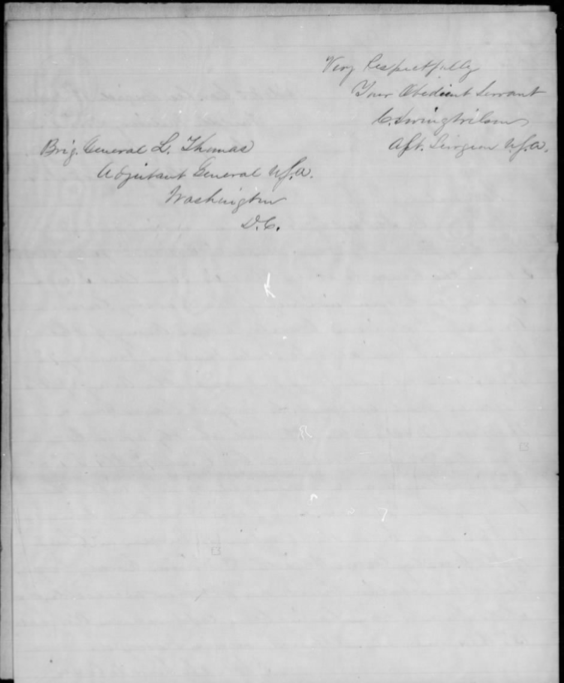 Very Respectfully
Your Obedient Servant
C. Ewing Wilson
Asst. Surgeon U.S.A.
Brig. General L. Thomas
Adjutant General U.S.A.
Washington
D.C.